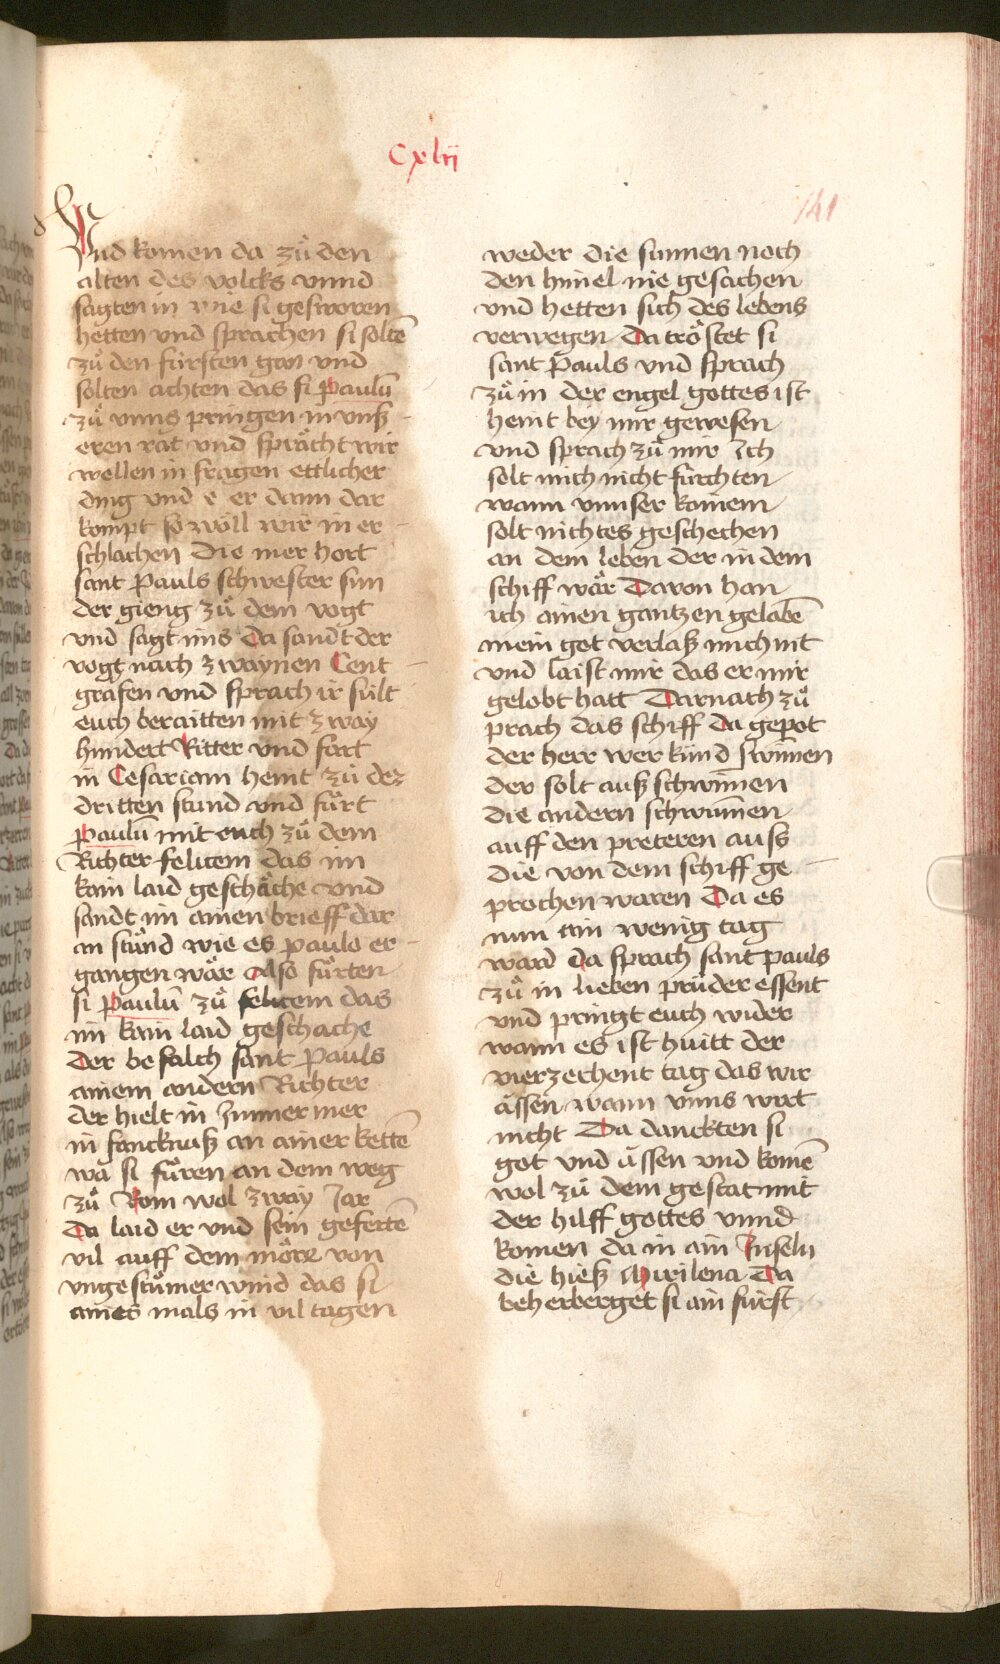 Cxlii
141
Und komen da zuͦ den
alten des volcks vnnd
sagten in wie si gesworen
hetten vnd sprachen si solte͂
zuͦ den fürsten gan vnd
solten achten das si Paulu͂
zuͦ vnns pringen in vnß
eren rat vnd sprächt wir
wellen in fragen ettlicher
ding vnd e er dann dar
kompt so wöll wir in er
schlachen Die mer hort
sant Pauls schwester sun
der gieng zuͦ dem vogt
vnd sagt ims Da sandt der
vogt nach zwaynen Cent
grafen vnd sprach ir sült
euch beraitten mit zway
hundert Ritter vnd fart
in Cesariam heint zuͦ dez
dritten stund vnd fürt
Paulu͂ mit euch zuͦ dem
Richter felicem das im
kain laid geschäche vnd
sandt im ainen brieff dar
an stuͦnd wie es paulo er
gangen wär Also fürten
si Paulu͂ zuͦ felicem das
im kain laid geschache
Der befalch sant Pauls
ainem andern Richter
der hielt in Immer mer
in fancknuß an ainer kette͂
wa si füren an dem weg
zuͦ Rom wol zway Jar
Da laid er vnd sein geferte͂
vil auff dem möre von
vngestümer wind das si
aines mals in vil tagen
weder die sunnen noch
den himel nie gesachen
vnd hetten sich des lebens
verwegen Da tröstet si
sant Pauls vnd sprach
zuͦ in der engel gottes ist
heint bey mir gewesen
vnd sprach zuͦ mir Ich
solt mich nicht fürchten
wann vnnser kainem
solt nichtes geschechen
an dem leben der in dem
schiff wär Davon han
ich ainen gantzen gelaube͂
mein got verlaß mich nit
vnd laist mir das er mir
gelobt hatt Darnach zuͦ
prach das schiff Da gepot
der herr wer kund swim̄en
der solt auß schwim̄en
die andern schwum̄en
auff den preteren auss
die von dem schiff ge
prochen waren Da es
nun ain wenig tag
ward Da sprach sant pauls
zuͦ in lieben prüder essent
vnd pringt euch wider
wann es ist huitt der
vierzechent tag das wir
ässen wann vnns wart
nicht Da danckten si
got vnd ässen vnd kome͂
wol zuͦ dem gestat mit
der hilff gottes vnnd
komen da in ain Inseln
die hieß Mirilena Da
beherberget si ain fürst